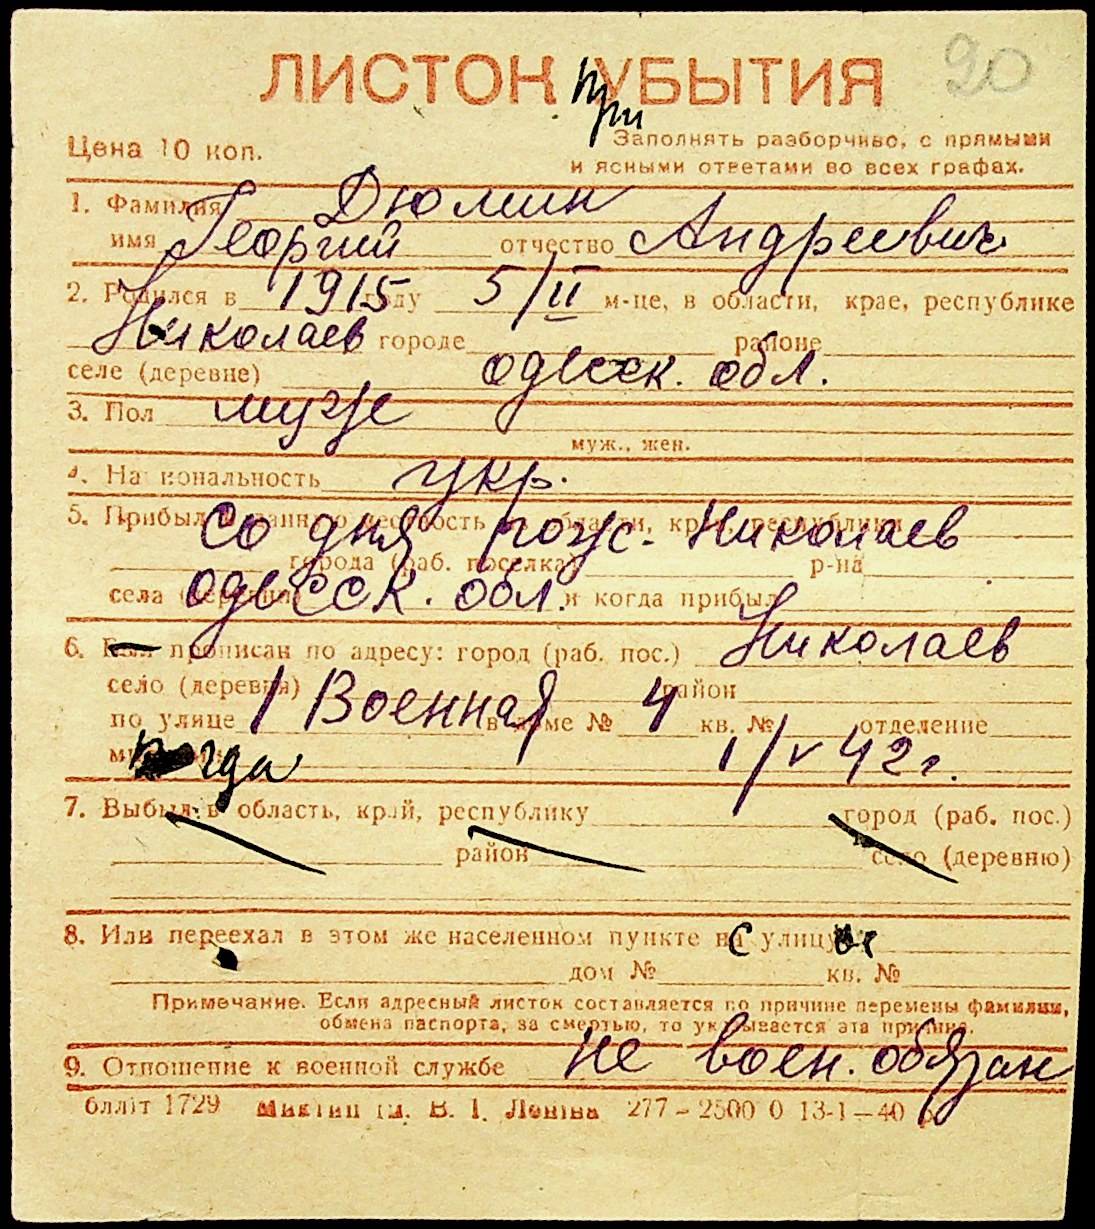 20
ЛИСТОК при УБЫТИЯ
Цена 10 коп.
Заполнять разборчиво, с прямыми
и ясными ответами во всех графах.
1. Фамилия Дюмин
имя Георгий отчество Андреевич
2. Родился в 1915 году 5/II м-це, в области, крае, республике
Николаев городе районе
селе (деревне) одесск. обл.
3. Пол муж
муж., жен.
4. Национальность укр.
5. Прибыл в данную местность из области, края, республики
со дня рожс. Николаев
города (раб. поселка) р-на
села (деревни) и когда прибыл
одесск. обл.
6. Был прописан по адресу: город (раб. пос.) Николаев
село (деревня) район
по улице 1 Военная в доме № 4 кв. № отделение
когда 1/V 42 г.
7. Выбыл в область, край, республику город (раб. пос.)
район село (деревню)
8. Или переехал в этом же населенном пункте на улицу
с
дом № кв. №
Примечание. Если адресный листок составляется по причине перемены фамилии,
обмена паспорта, за смертью, то указывается эта причина.
9. Отношение к военной службе не воен. обязан
блліт 1729 В. І. Леніна 277–2500 0 13-1–40